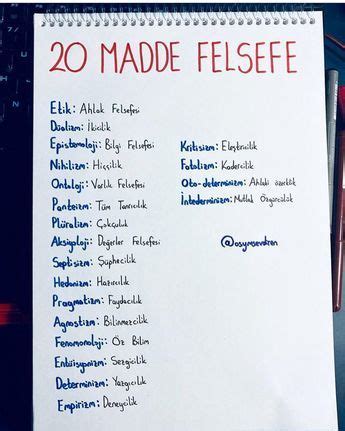 20 MADDE FELSEFE
Etik: Ahlak Felsefesi
Düalizm: İkicilik
Epistemoloji: Bilgi Felsefesi
Nihilizm: Hiççilik
Ontoloji: Varlık Felsefesi
Panteizm: Tüm Tanrıcılık
Plüralizm: Çokçuluk
Aksiyoloji: Değerler Felsefesi
Septisizm: Şüphecilik
Hedonizm: Hazcılık
Pragmatizm: Faydacılık
Agnostizm: Bilinmezcilik
Fenomonoloji: Öz Bilim
Entüisyonizm: Sezgicilik
Determinizm: Yazgıcılık
Empirizm: Deneycilik
Kritisizm: Eleştiricilik
Fatalizm: Kadercilik
Oto-determinizm: Ahlaki özerklik
İntederminizm: Mutlak Özgürcülük
@osymsevdiren